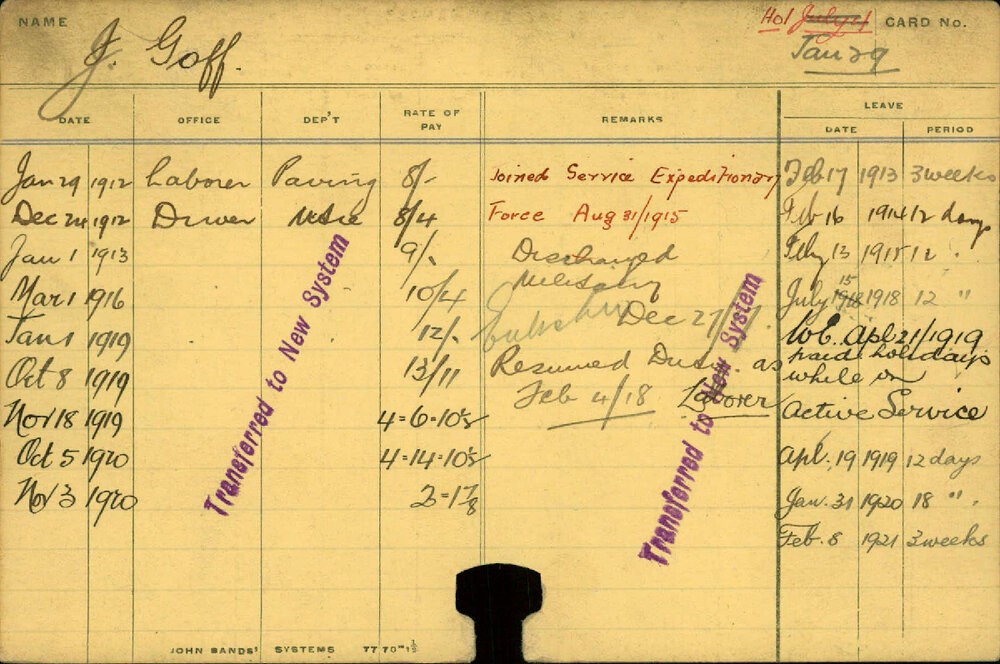 NAME J. Goff. Hol July 21 CARD No.
Jan 29
DATE OFFICE DEP'T RATE OF PAY REMARKS LEAVE
DATE PERIOD
Jan 29 1912 Laborer Paving 8/- Joined Service Expeditionary Feb 17 1913 3 weeks
Dec 24 1912 Driver 8/4 Force Aug 31/1915 Feb 16 1914 12 days
Jan 1 1913 9/- Discharged Feby 13 1915 12 "
Mar 1 1916 10/4 Military July 15 1918 12 "
Jan 1 1919 12/- Dec 27/17. W.E. Apl 21/1919
Oct 8 1919 13/11 Resumed Duty as paid holidays
while on
Nov 18 1919 4=6=10½ Feb 4/18 Laborer Active Service
Oct 5 1920 4=14=10½ Apl. 19 1919 12 days
Nov 3 1920 2=17/8 Jan. 31 1920 18 ".
Feb. 8 1921 3 weeks
Transferred to New System
Transferred to New System
JOHN SANDS' SYSTEMS 7770